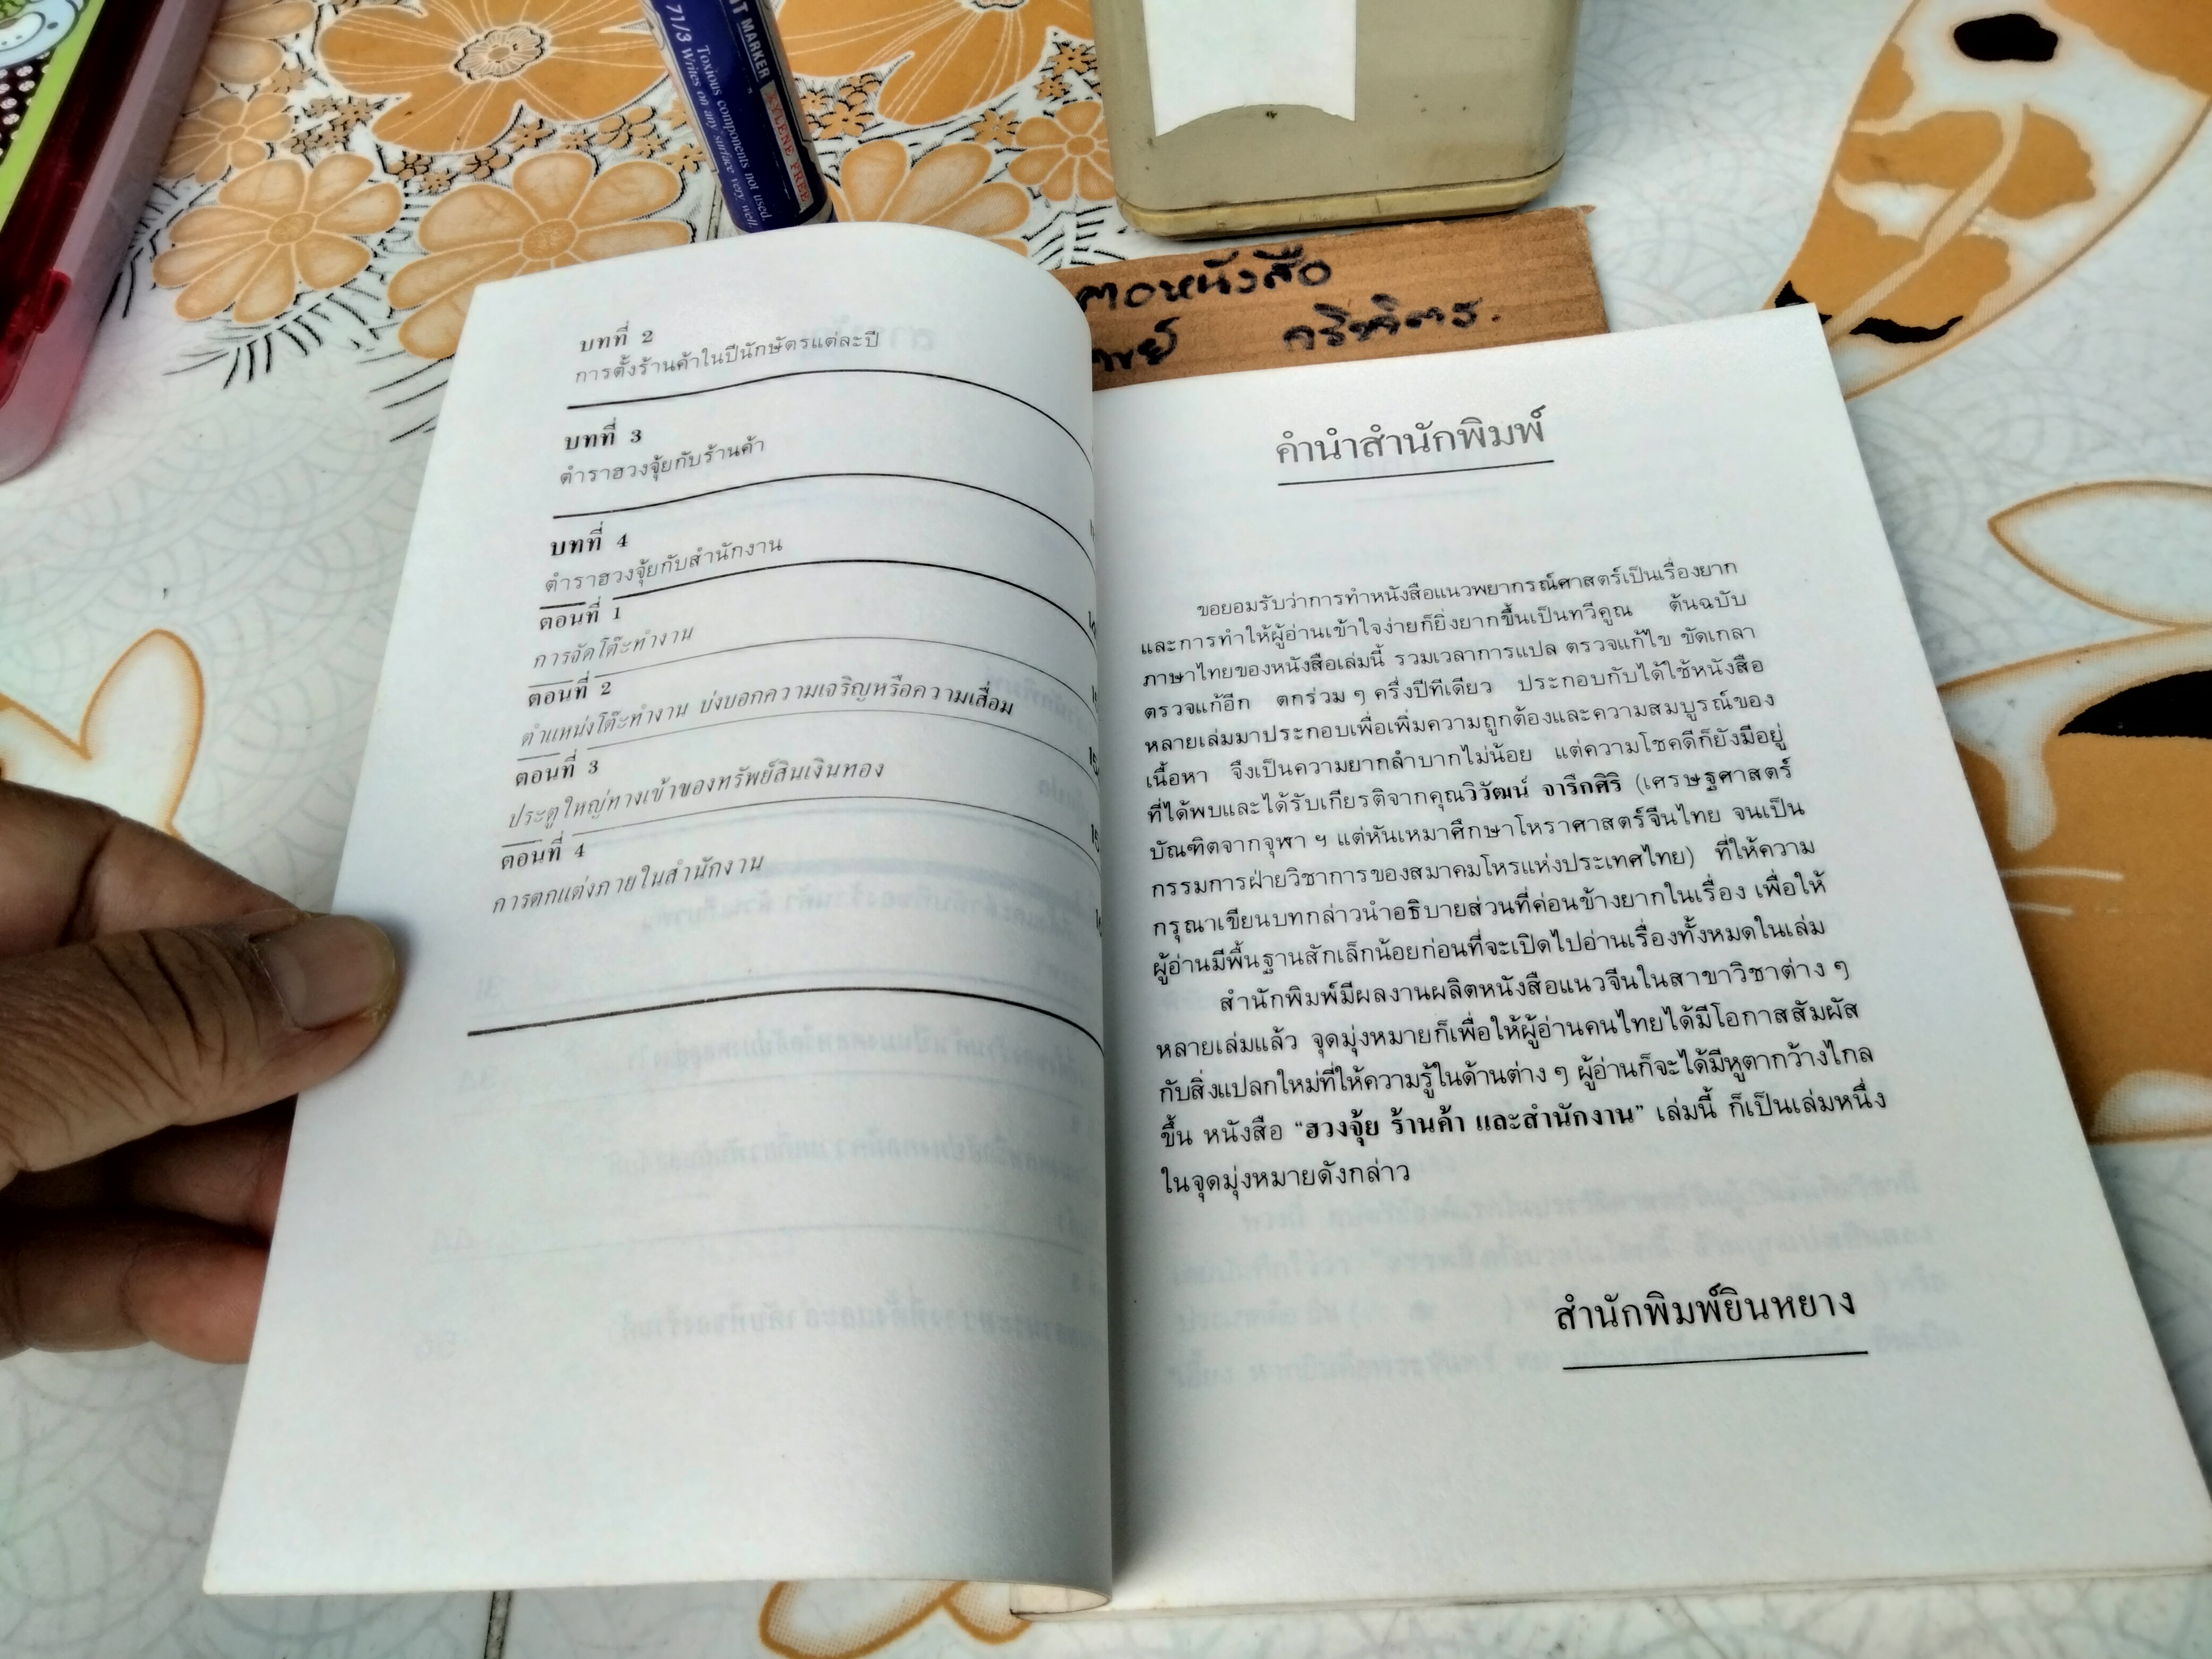 NT MARKER
XYLENE FREE
71/3 Writes on any surface very well.
Toxious components not used.
กริพิศร.
บทที่ 2
การตั้งร้านค้าในปีนักษัตรแต่ละปี
บทที่ 3
ตำราฮวงจุ้ยกับร้านค้า
บทที่ 4
ตำราฮวงจุ้ยกับสำนักงาน
ตอนที่ 1
การจัดโต๊ะทำงาน
ตอนที่ 2
ตำแหน่งโต๊ะทำงาน บ่งบอกความเจริญหรือความเสื่อม
ตอนที่ 3
ประตูใหญ่ทางเข้าของทรัพย์สินเงินทอง
ตอนที่ 4
การตกแต่งภายในสำนักงาน
คำนำสำนักพิมพ์
ขอยอมรับว่าการทำหนังสือแนวพยากรณ์ศาสตร์เป็นเรื่องยาก
และการทำให้ผู้อ่านเข้าใจง่ายก็ยิ่งยากขึ้นเป็นทวีคูณ ต้นฉบับ
ภาษาไทยของหนังสือเล่มนี้ รวมเวลาการแปล ตรวจแก้ไข ขัดเกลา
ตรวจแก้อีก ตกร่วม ๆ ครึ่งปีทีเดียว ประกอบกับได้ใช้หนังสือ
หลายเล่มมาประกอบเพื่อเพิ่มความถูกต้องและความสมบูรณ์ของ
เนื้อหา จึงเป็นความยากลำบากไม่น้อย แต่ความโชคดีก็ยังมีอยู่
ที่ได้พบและได้รับเกียรติจากคุณวิวัฒน์ จารึกศิริ (เศรษฐศาสตร์
บัณฑิตจากจุฬา ฯ แต่หันเหมาศึกษาโหราศาสตร์จีนไทย จนเป็น
กรรมการฝ่ายวิชาการของสมาคมโหรแห่งประเทศไทย) ที่ให้ความ
กรุณาเขียนบทกล่าวนำอธิบายส่วนที่ค่อนข้างยากในเรื่อง เพื่อให้
ผู้อ่านมีพื้นฐานสักเล็กน้อยก่อนที่จะเปิดไปอ่านเรื่องทั้งหมดในเล่ม
สำนักพิมพ์มีผลงานผลิตหนังสือแนวจีนในสาขาวิชาต่าง ๆ
หลายเล่มแล้ว จุดมุ่งหมายก็เพื่อให้ผู้อ่านคนไทยได้มีโอกาสสัมผัส
กับสิ่งแปลกใหม่ที่ให้ความรู้ในด้านต่าง ๆ ผู้อ่านก็จะได้มีหูตากว้างไกล
ขึ้น หนังสือ “ฮวงจุ้ย ร้านค้า และสำนักงาน” เล่มนี้ ก็เป็นเล่มหนึ่ง
ในจุดมุ่งหมายดังกล่าว
สำนักพิมพ์ยินหยาง